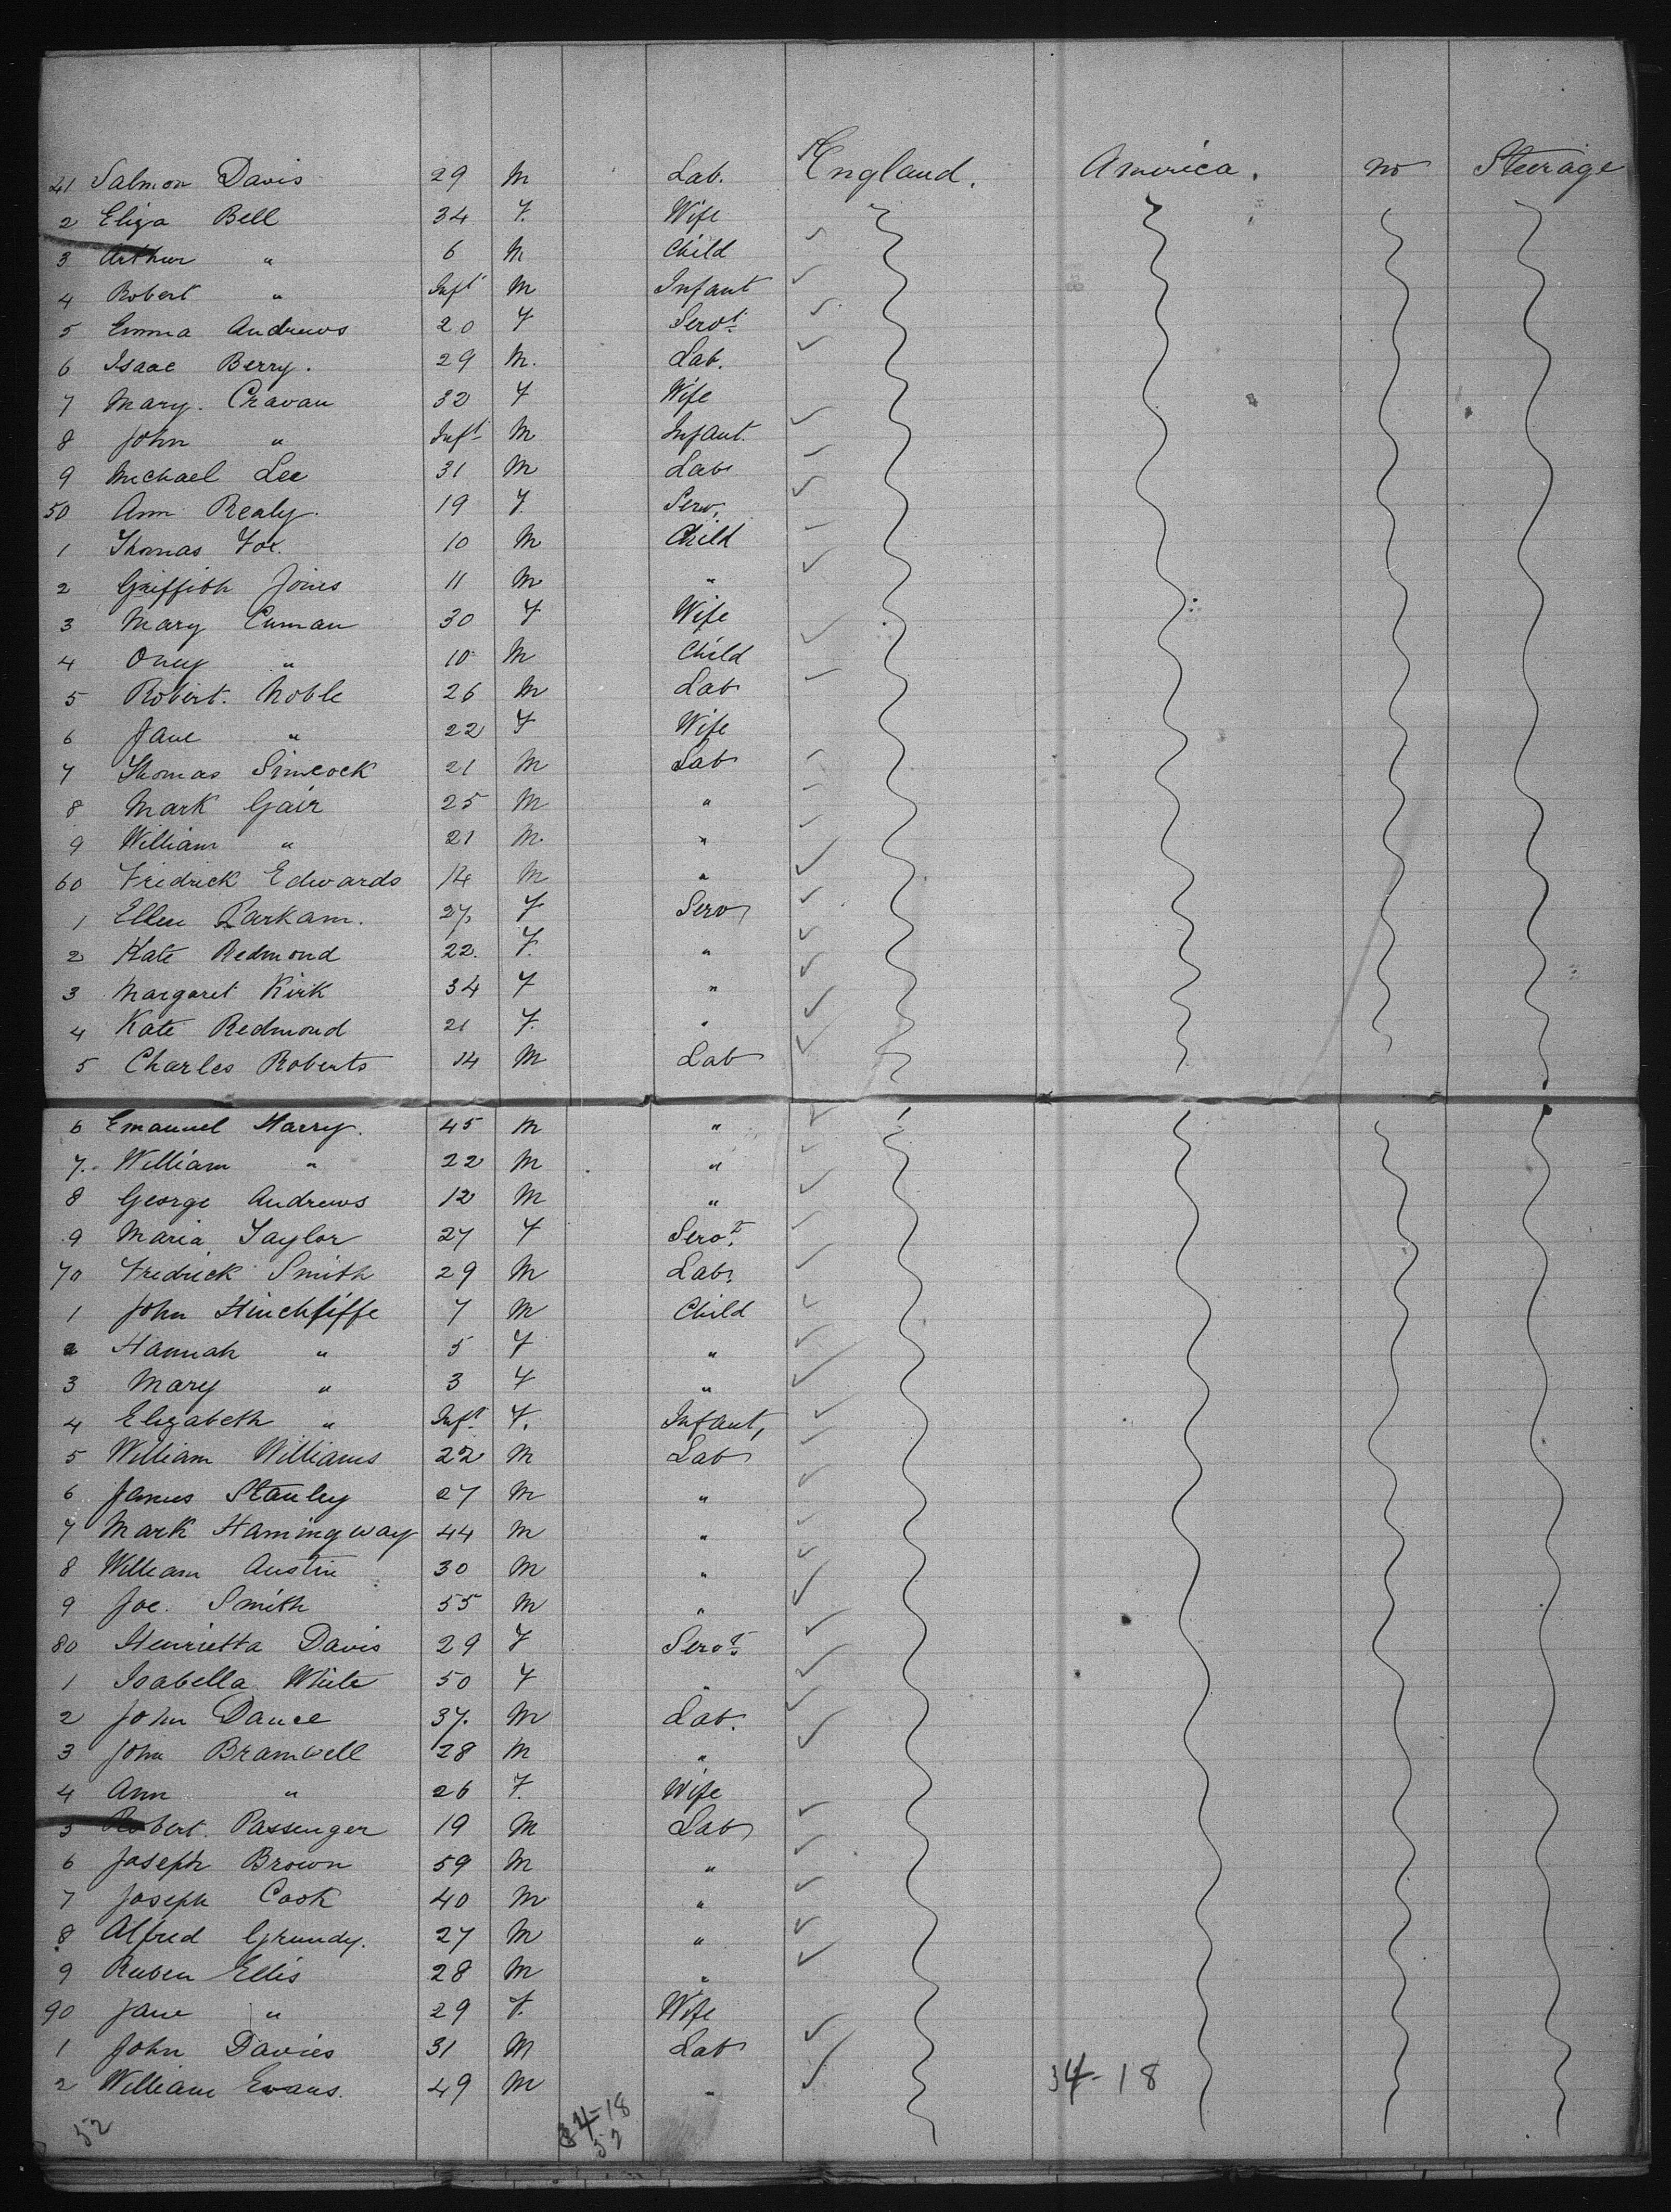 41 Salmon Davis 29 M Lab. England. America. no Steerage
2 Eliza Bell 34 F. Wife
3 Arthur " 6 M Child
4 Robert " Inft M Infant
5 Emma Andrews 20 F Servt.
6 Isaac Berry. 29 M. Lab.
7 Mary. Cravan 32 F Wife
8 John " Inft M Infant.
9 Michael Lee 31 M Lab
50 Ann Realy. 19 F Serv.
1 Thomas Fox. 10 M Child
2 Griffith Jones 11 M "
3 Mary Curnan 30 F Wife
4 Ony " 10 M Child
5 Robert. Noble 26 M Lab
6 Jane " 22 F Wife
7 Thomas Simcock 21 M Lab
8 Mark Gair 25 M "
9 William " 21 M. "
60 Fredrick Edwards 14 M "
1 Ellen Parkam. 27. F Serv
2 Kate Redmond 22. F. "
3 Margaret Kirk 34 F "
4 Kate Redmond 21 F. "
5 Charles Roberts 14 M Lab
6 Emanuel Harry. 45 M "
7. William " 22 M "
8 George Andrews 12 M "
9 Maria Taylor 27 F Servt.
70 Fredrick Smith 29 M Lab.
1 John Hinchfiffe 7 M Child
2 Hannah " 5 F "
3 Mary " 3 F "
4 Elizabeth " Inft F. Infant,
5 William Williams 22 M Lab
6 James Stanley 27 M "
7 Mark Hamingway 44 M "
8 William Austin 30 M "
9 Joe. Smith 55 M "
80 Henrietta Davis 29 F Servt.
1 Isabella White 50 F "
2 John Dance 37. M Lab.
3 John Bramwell 28 M "
4 Ann " 26 F. Wife
5 Robert. Passenger 19 M Lab
6 Joseph Brown 59 M "
7 Joseph Cook 40 M "
8 Alfred Grundy. 27 M "
9 Ruben Ellis 28 M "
90 Jane " 29 F. Wife
1 John Davies 31 M Lab
2 William Evans. 49 M " 34-18
52 34-18
52